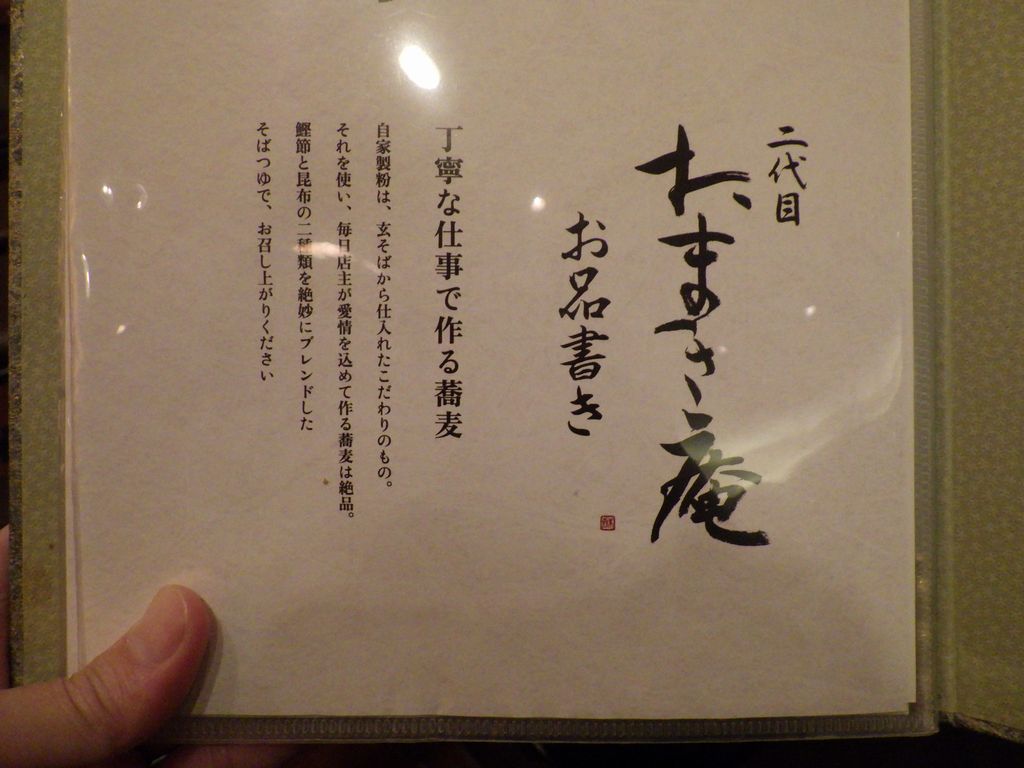 二代目
おまさ庵
お品書き
丁寧な仕事で作る蕎麦
自家製粉は、玄そばから仕入れたこだわりのもの。
それを使い、毎日店主が愛情を込めて作る蕎麦は絶品。
鰹節と昆布の二種類を絶妙にブレンドした
そばつゆで、お召し上がりください